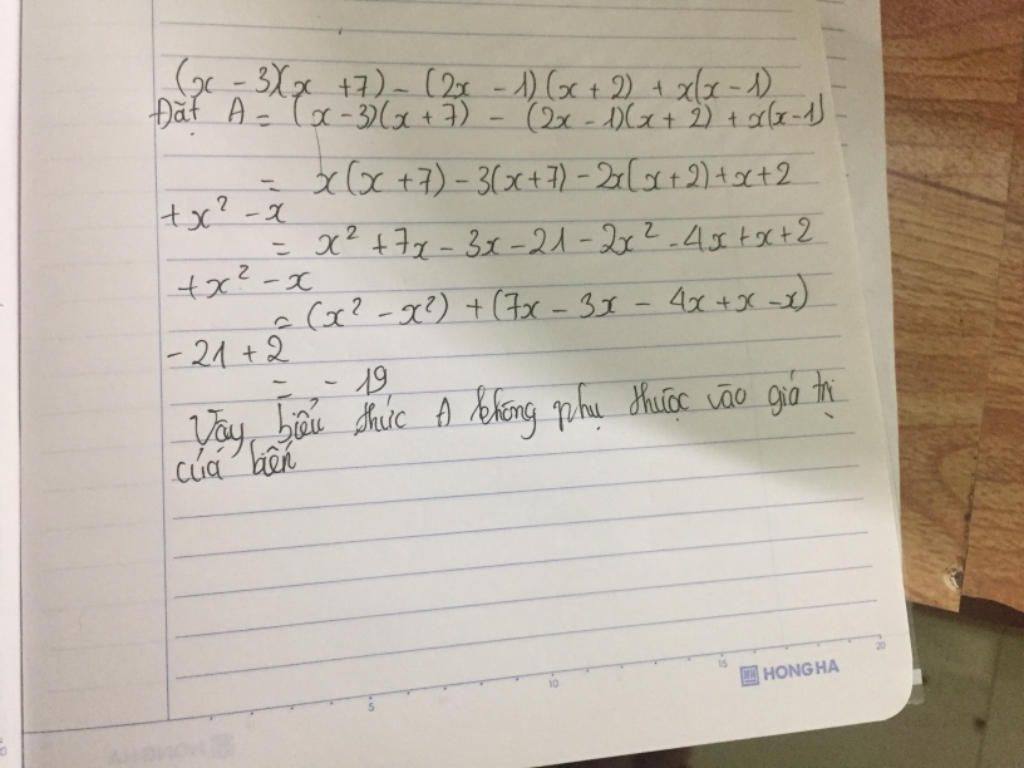 (x - 3)(x + 7) - (2x - 1)(x + 2) + x(x - 1)
Đặt A = (x - 3)(x + 7) - (2x - 1)(x + 2) + x(x - 1)
= x(x + 7) - 3(x + 7) - 2x(x + 2) + x + 2
+ x² - x
= x² + 7x - 3x - 21 - 2x² - 4x + x + 2
+ x² - x
= (x² - x²) + (7x - 3x - 4x + x - x)
- 21 + 2
= - 19
Vậy biểu thức A không phụ thuộc vào giá trị
của biến
5 10 15 20
HONG HA